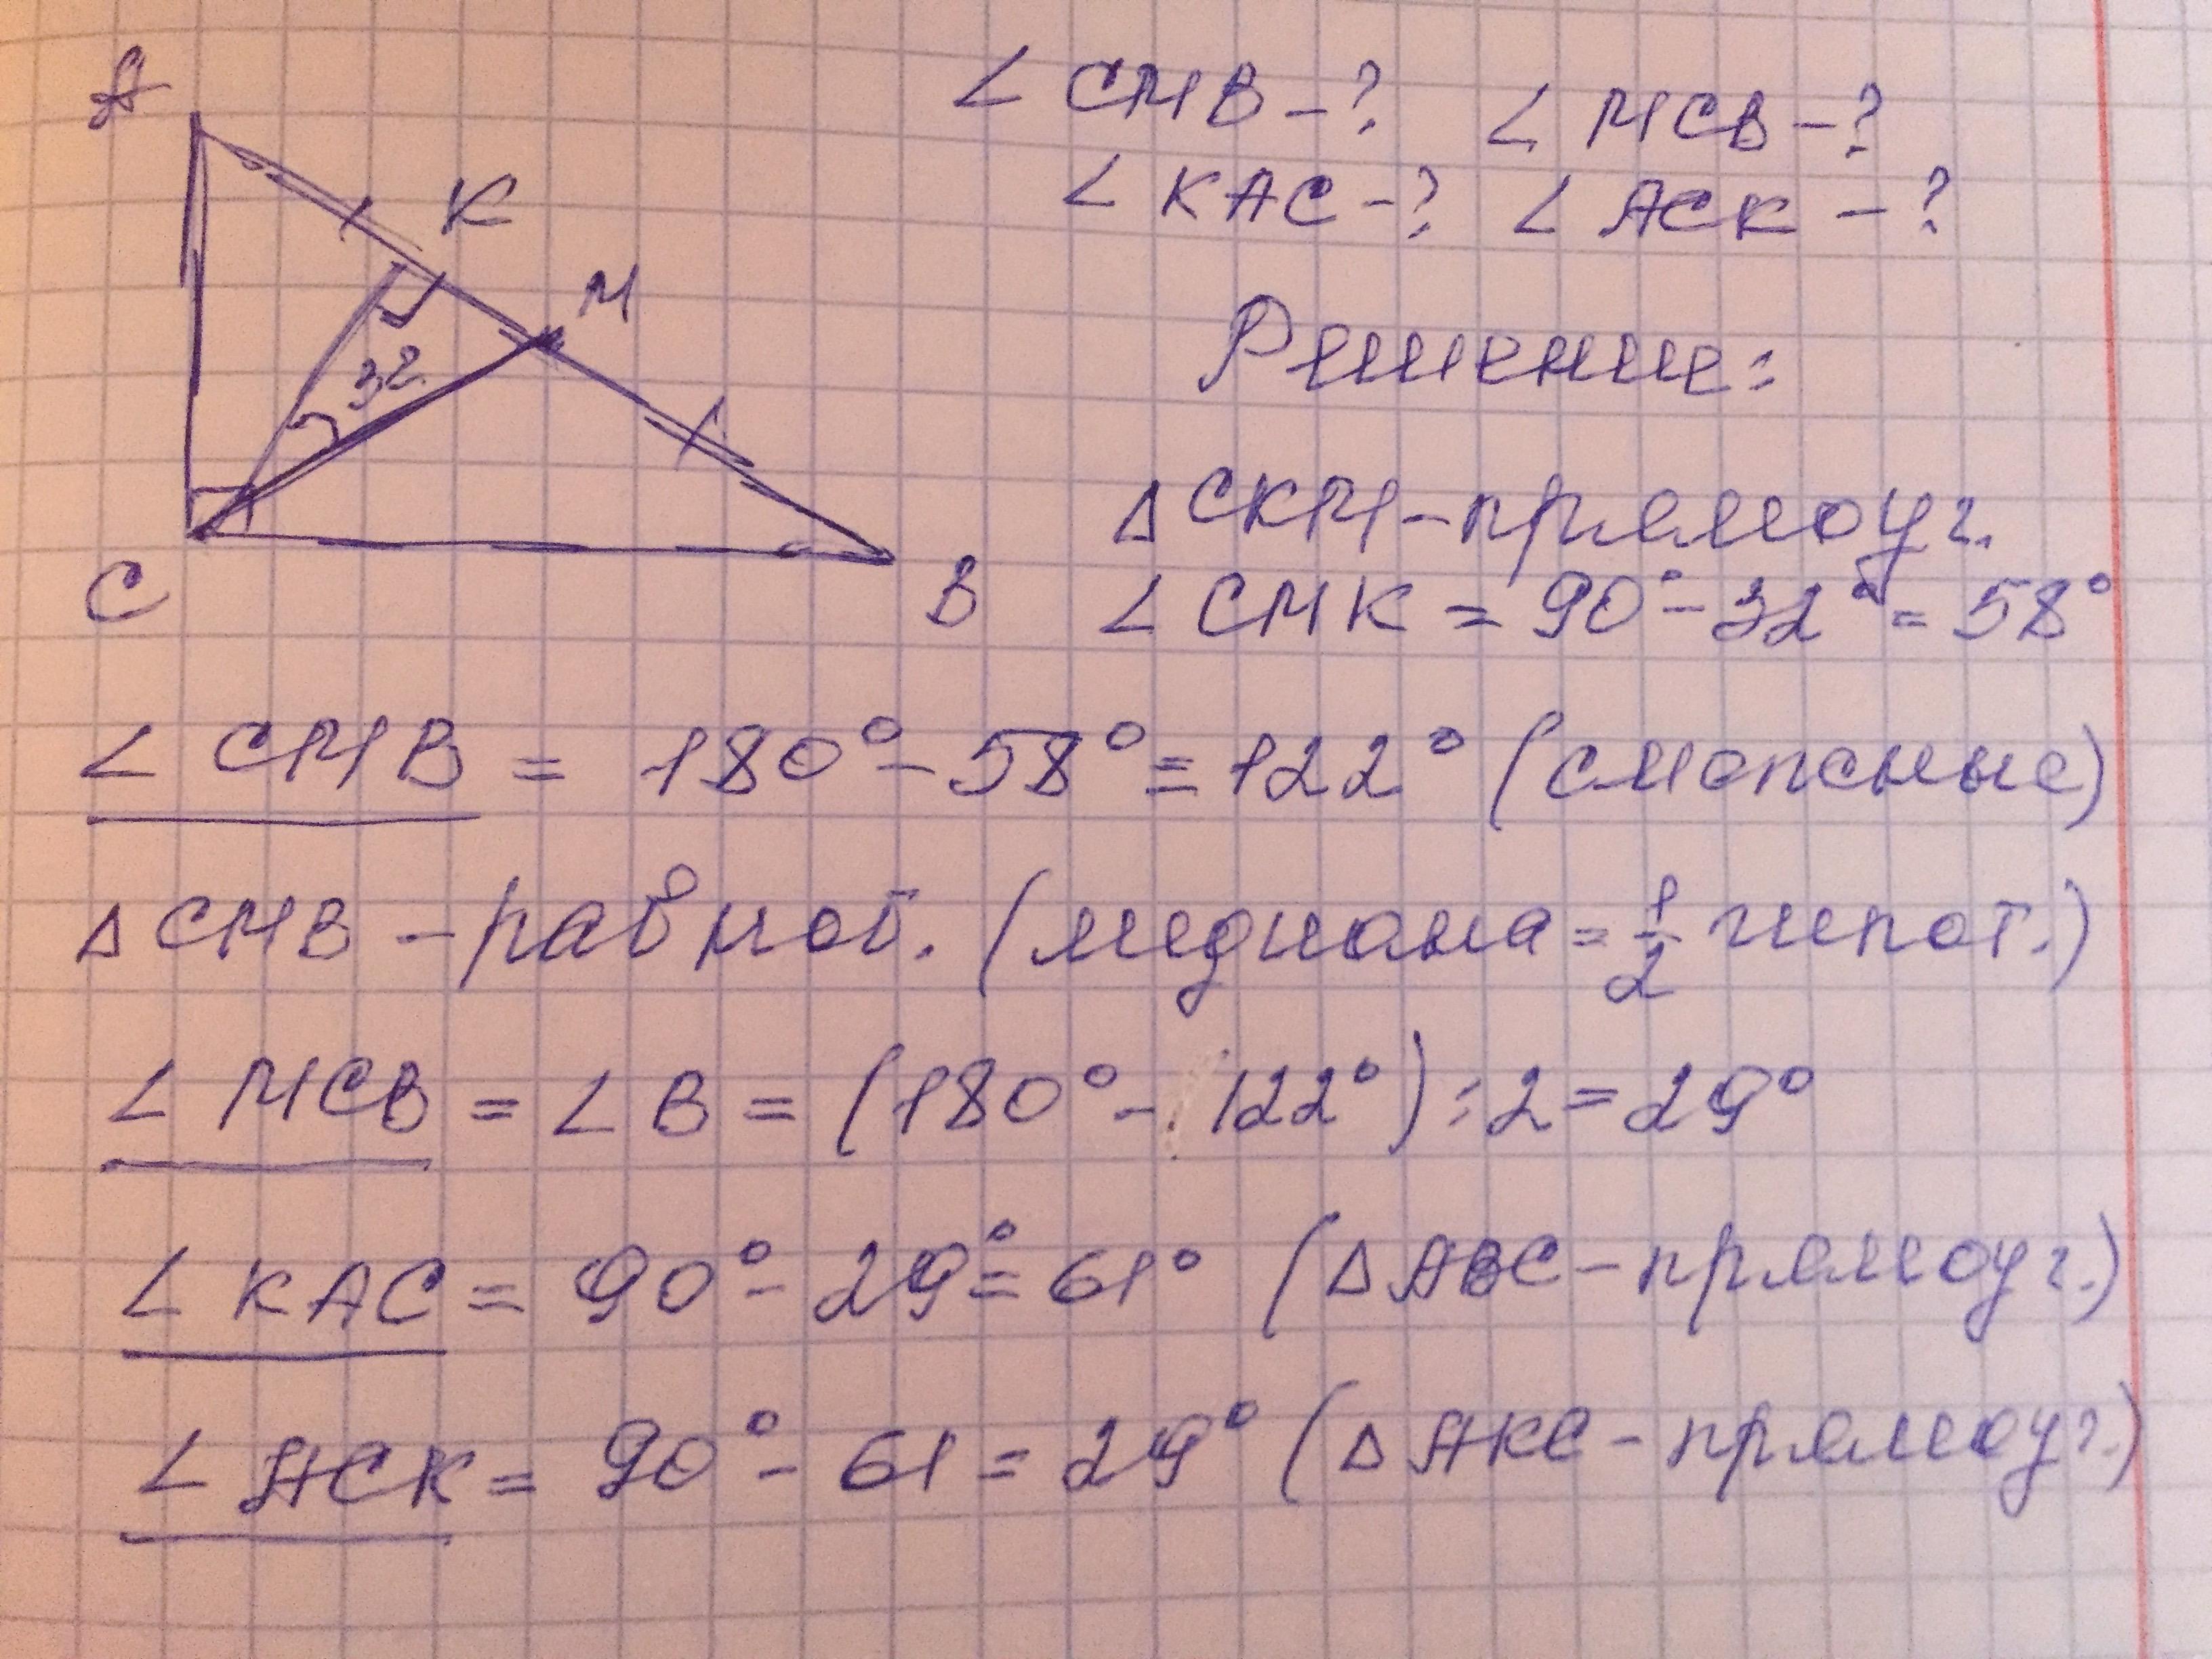 A
K
M
32
C
B
∠ CMB – ? ∠ MCB – ?
∠ KAC – ? ∠ ACK – ?
Решение:
Δ CKM – прямоуг.
∠ CMK = 90° – 32° = 58°
∠ CMB = 180° – 58° = 122° (смежные)
Δ CMB – равноб. (медиана = 1/2 гипот.)
∠ MCB = ∠ B = (180° – 122°) : 2 = 29°
∠ KAC = 90° – 29° = 61° (Δ ABC – прямоуг.)
∠ ACK = 90° – 61 = 29° (Δ AKC – прямоуг.)